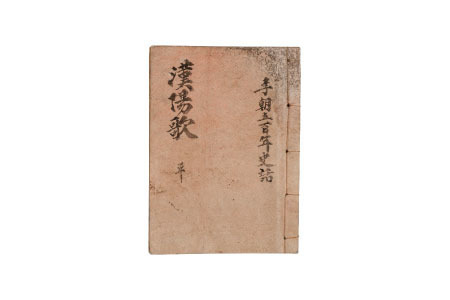 李朝五百年史話
漢陽歌